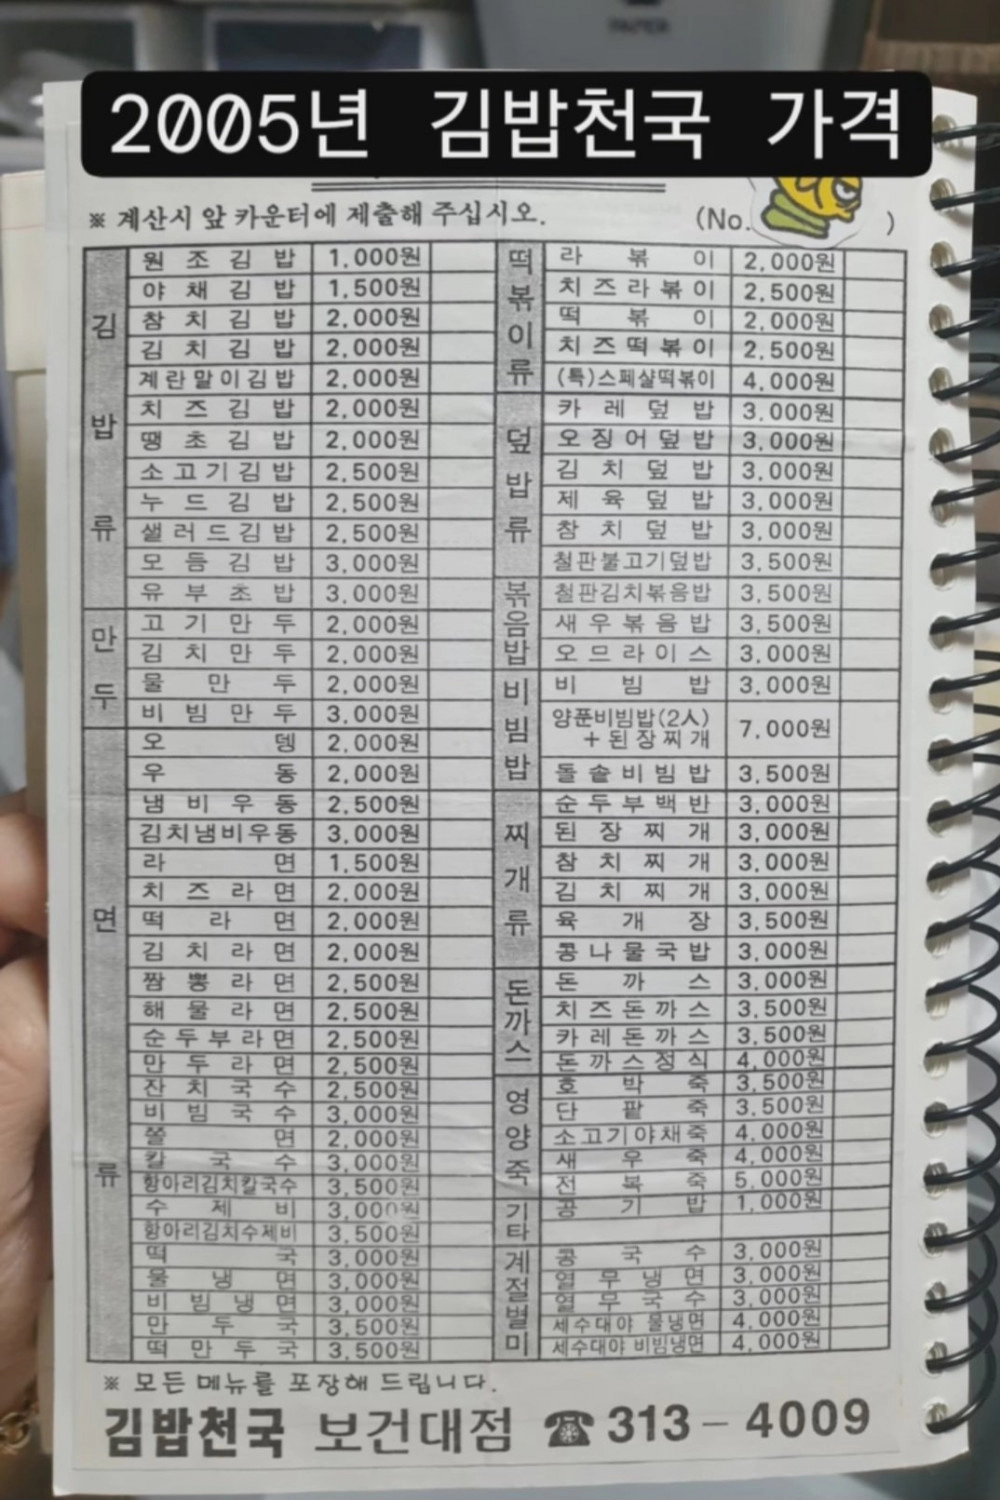 PAPER
2005년 김밥천국 가격
※ 계산시 앞 카운터에 제출해 주십시오. (No. )
김밥류
원조김밥 1,000원
야채김밥 1,500원
참치김밥 2,000원
김치김밥 2,000원
계란말이김밥 2,000원
치즈김밥 2,000원
땡초김밥 2,000원
소고기김밥 2,500원
누드김밥 2,500원
샐러드김밥 2,500원
모듬김밥 3,000원
유부초밥 3,000원
만두
고기만두 2,000원
김치만두 2,000원
물만두 2,000원
비빔만두 3,000원
면류
오뎅 2,000원
우동 2,000원
냄비우동 2,500원
김치냄비우동 3,000원
라면 1,500원
치즈라면 2,000원
떡라면 2,000원
김치라면 2,000원
짬뽕라면 2,500원
해물라면 2,500원
순두부라면 2,500원
만두라면 2,500원
잔치국수 2,500원
비빔국수 3,000원
쫄면 2,000원
칼국수 3,000원
항아리김치칼국수 3,500원
수제비 3,000원
항아리김치수제비 3,500원
떡국 3,000원
물냉면 3,000원
비빔냉면 3,000원
만두국 3,500원
떡만두국 3,500원
떡볶이류
라볶이 2,000원
치즈라볶이 2,500원
떡볶이 2,000원
치즈떡볶이 2,500원
(특)스페샬떡볶이 4,000원
덮밥류
카레덮밥 3,000원
오징어덮밥 3,000원
김치덮밥 3,000원
제육덮밥 3,000원
참치덮밥 3,000원
철판불고기덮밥 3,500원
볶음밥
철판김치볶음밥 3,500원
새우볶음밥 3,500원
오므라이스 3,000원
비빔밥
비빔밥 3,000원
양푼비빔밥(2人)
+된장찌개 7,000원
돌솥비빔밥 3,500원
찌개류
순두부백반 3,000원
된장찌개 3,000원
참치찌개 3,000원
김치찌개 3,000원
육개장 3,500원
콩나물국밥 3,000원
돈까스
돈까스 3,000원
치즈돈까스 3,500원
카레돈까스 3,500원
돈까스정식 4,000원
영양죽
호박죽 3,500원
단팥죽 3,500원
소고기야채죽 4,000원
새우죽 4,000원
전복죽 5,000원
기타
공기밥 1,000원
계절별미
콩국수 3,000원
열무냉면 3,000원
열무국수 3,000원
세수대야 물냉면 4,000원
세수대야 비빔냉면 4,000원
※ 모든 메뉴를 포장해 드립니다.
김밥천국 보건대점 ☎ 313-4009